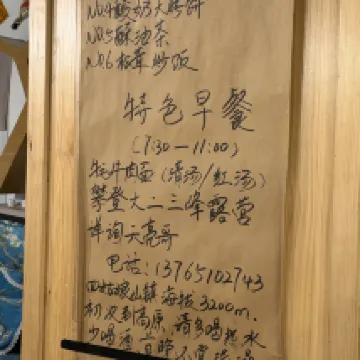 No.4 酸奶大烤饼
No.5 酥油茶
No.6 松茸炒饭
特色早餐
(7:30—11:00)
牦牛肉面 (清汤/红汤)
攀登大二三峰露营
详询六亮哥
电话:13765102743
四姑娘山镇海拔3200m.
初次到高原,请多喝热水
少喝酒 首晚